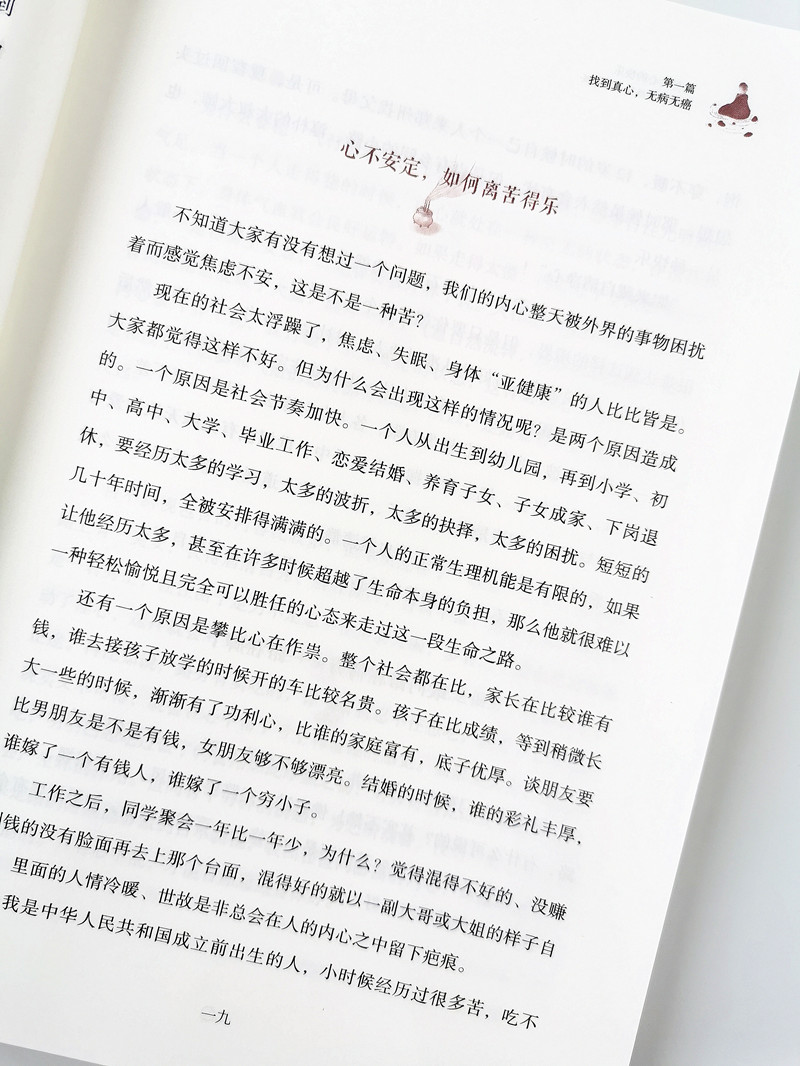 到
第一篇
找到真心，无病无癌
心不安定，如何离苦得乐
不知道大家有没有想过一个问题，我们的内心整天被外界的事物困扰
着而感觉焦虑不安，这是不是一种苦？
现在的社会太浮躁了，焦虑、失眠、身体“亚健康”的人比比皆是。
大家都觉得这样不好。但为什么会出现这样的情况呢？是两个原因造成
的。一个原因是社会节奏加快。一个人从出生到幼儿园，再到小学、初
中、高中、大学、毕业工作、恋爱结婚、养育子女、子女成家、下岗退
休，要经历太多的学习，太多的波折，太多的抉择，太多的困扰。短短的
几十年时间，全被安排得满满的。一个人的正常生理机能是有限的，如果
让他经历太多，甚至在许多时候超越了生命本身的负担，那么他就很难以
一种轻松愉悦且完全可以胜任的心态来走过这一段生命之路。
还有一个原因是攀比心在作祟。整个社会都在比，家长在比较谁有
钱，谁去接孩子放学的时候开的车比较名贵。孩子在比成绩，等到稍微长
大一些的时候，渐渐有了功利心，比谁的家庭富有，底子优厚。谈朋友要
比男朋友是不是有钱，女朋友够不够漂亮。结婚的时候，谁的彩礼丰厚，
谁嫁了一个有钱人，谁嫁了一个穷小子。
工作之后，同学聚会一年比一年少，为什么？觉得混得不好的、没赚
钱的没有脸面再去上那个台面，混得好的就以一副大哥或大姐的样子自
里面的人情冷暖、世故是非总会在人的内心之中留下疤痕。
我是中华人民共和国成立前出生的人，小时候经历过很多苦，吃不
一九